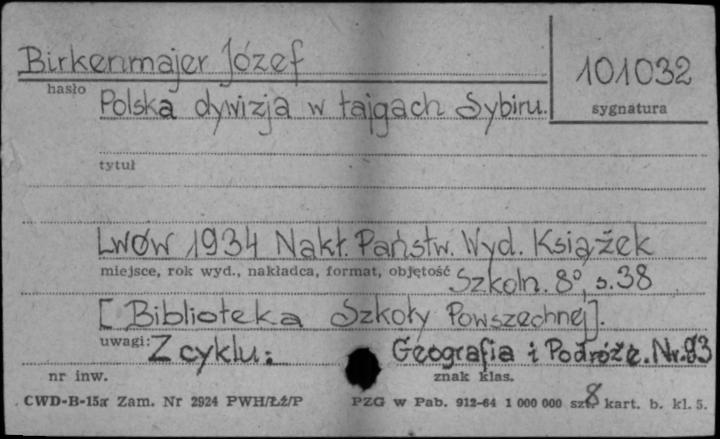 Birkenmajer Józef
101032
hasło
sygnatura
Polska dywizja w tajgach Sybiru.
tytuł
Lwów 1934 Nakł. Państw. Wyd. Książek
miejsce, rok wyd., nakładca, format, objętość Szkoln. 8°, s. 38
[Biblioteka Szkoły Powszechnej].
uwagi: Z cyklu: Geografia i Podróże. Nr.
nr inw. znak klas.
CWD-B-15a Zam. Nr 2924 PWH/ŁŹ/P PZG w Pab. 912-64 1 000 000 szt. kart. b. kl. 5.
8